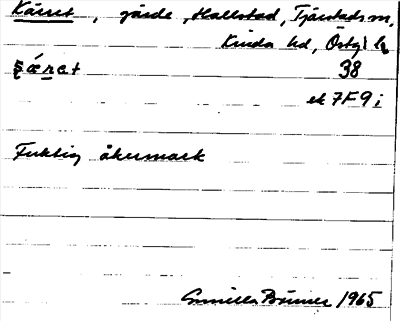 Kärret, gärde, Hallstad, Tjärstads sn,
Kinda hd, Östg. l.
38
ek 7F9i
Fuktig åkermark
Gunilla Brinner 1965